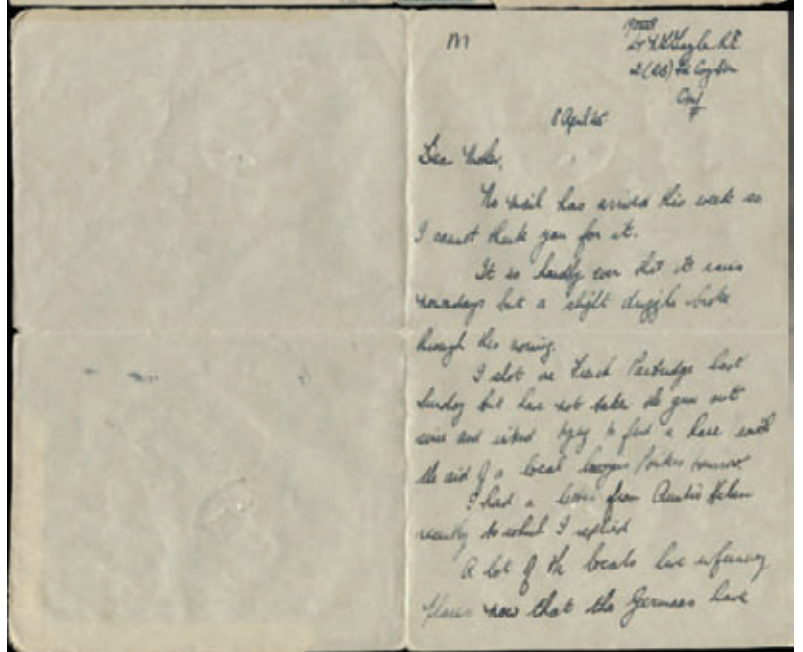 M
8 April 45
Dear Mother,
No mail has arrived this week so
I cannot thank you for it.
It is hardly ever that it rains
nowadays but a slight drizzle broke
through this morning.
I shot one French Partridge last
Sunday but have not taken the gun out
since and intend trying to find a hare with
the aid of a local tomorrow
I had a letter from Auntie Helen
recently to which I replied
A lot of the locals have
places now that the Germans have